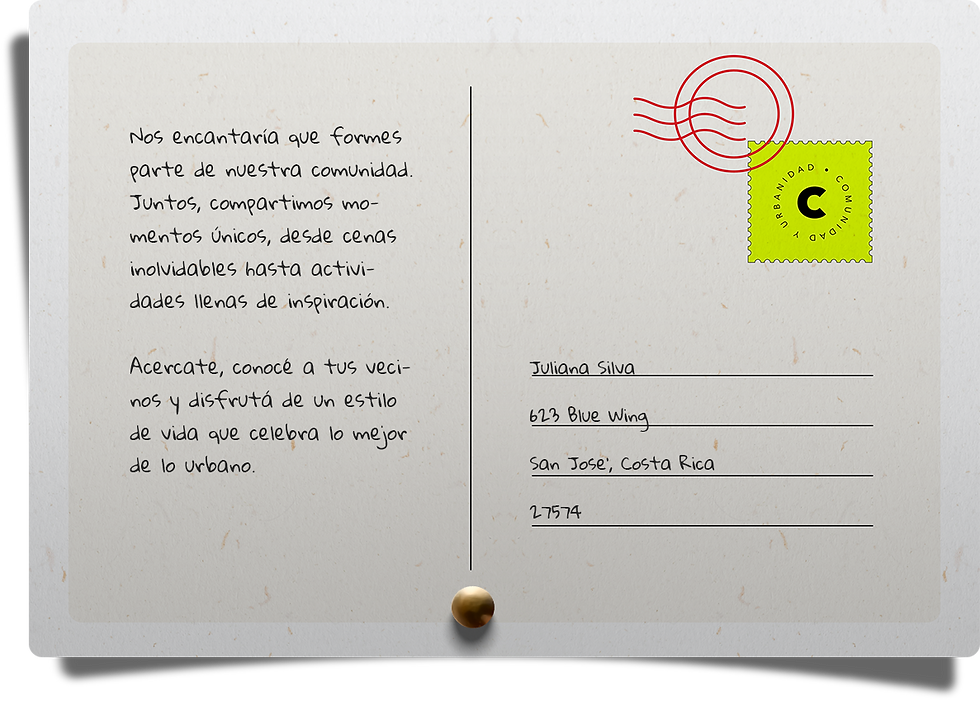 Nos encantaría que formes
parte de nuestra comunidad.
Juntos, compartimos mo-
mentos únicos, desde cenas
inolvidables hasta activi-
dades llenas de inspiración.
Acercate, conocé a tus veci-
nos y disfrutá de un estilo
de vida que celebra lo mejor
de lo urbano.
COMUNIDAD Y URBANIDAD •
C
Juliana Silva
623 Blue Wing
San Jose', Costa Rica
27574